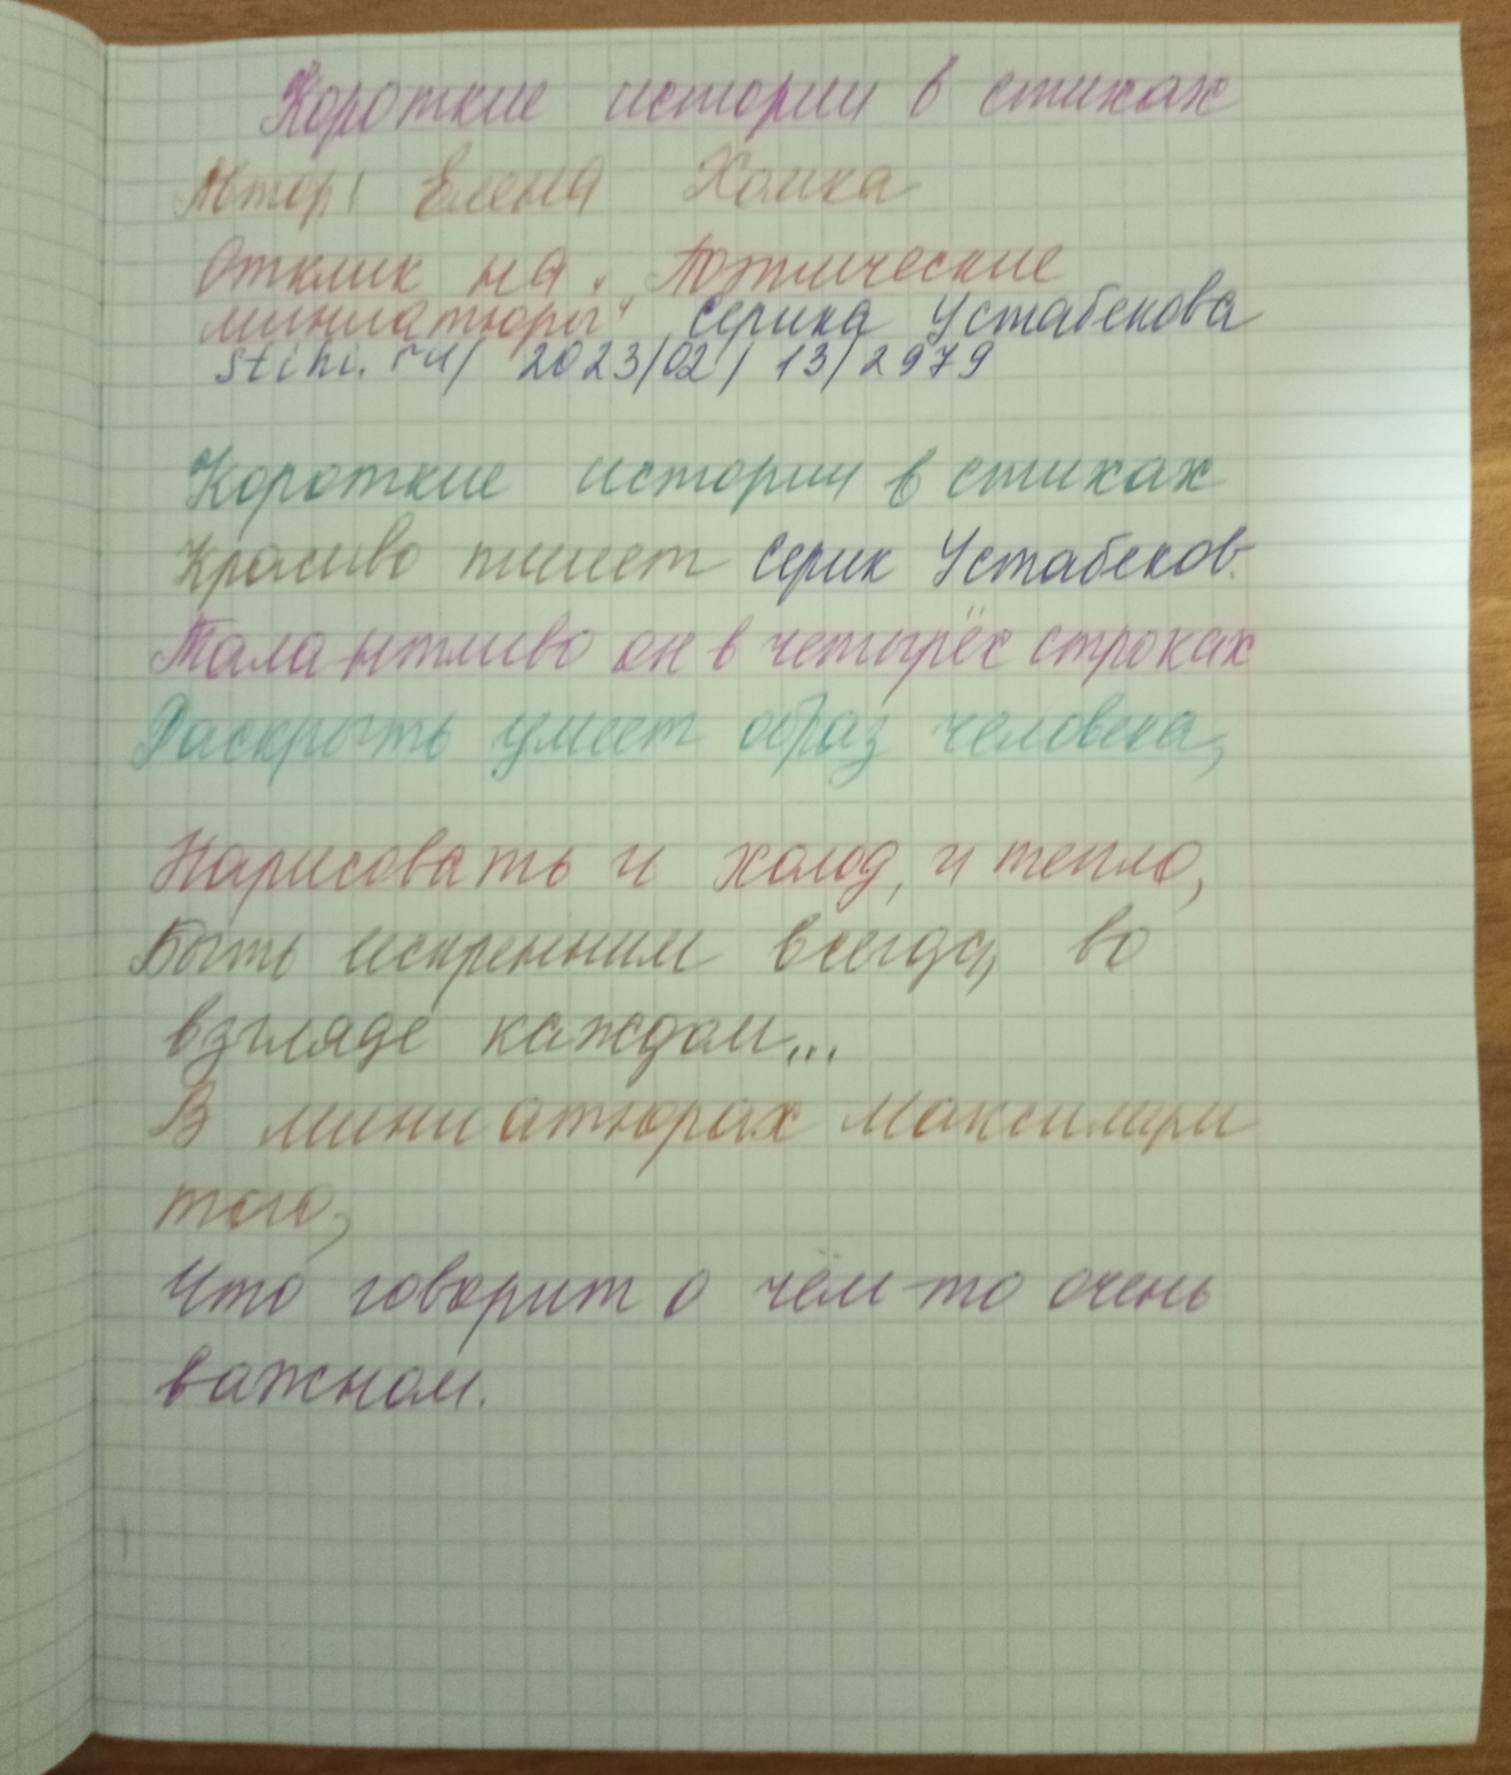 Короткие истории в стихах
Автор: Елена Хомка
Отклик на „Поэтические
миниатюры" Серика Устабекова
stihi.ru/ 2023/02/13/2979
Короткие истории в стихах
Красиво пишет Серик Устабеков.
Талантливо он в четырёх строках
Раскрыть умеет образ человека,
Нарисовать и холод, и тепло,
Быть искренним всегда, во
взгляде каждом...
В миниатюрах максимум
того,
Что говорит о чём-то очень
важном.